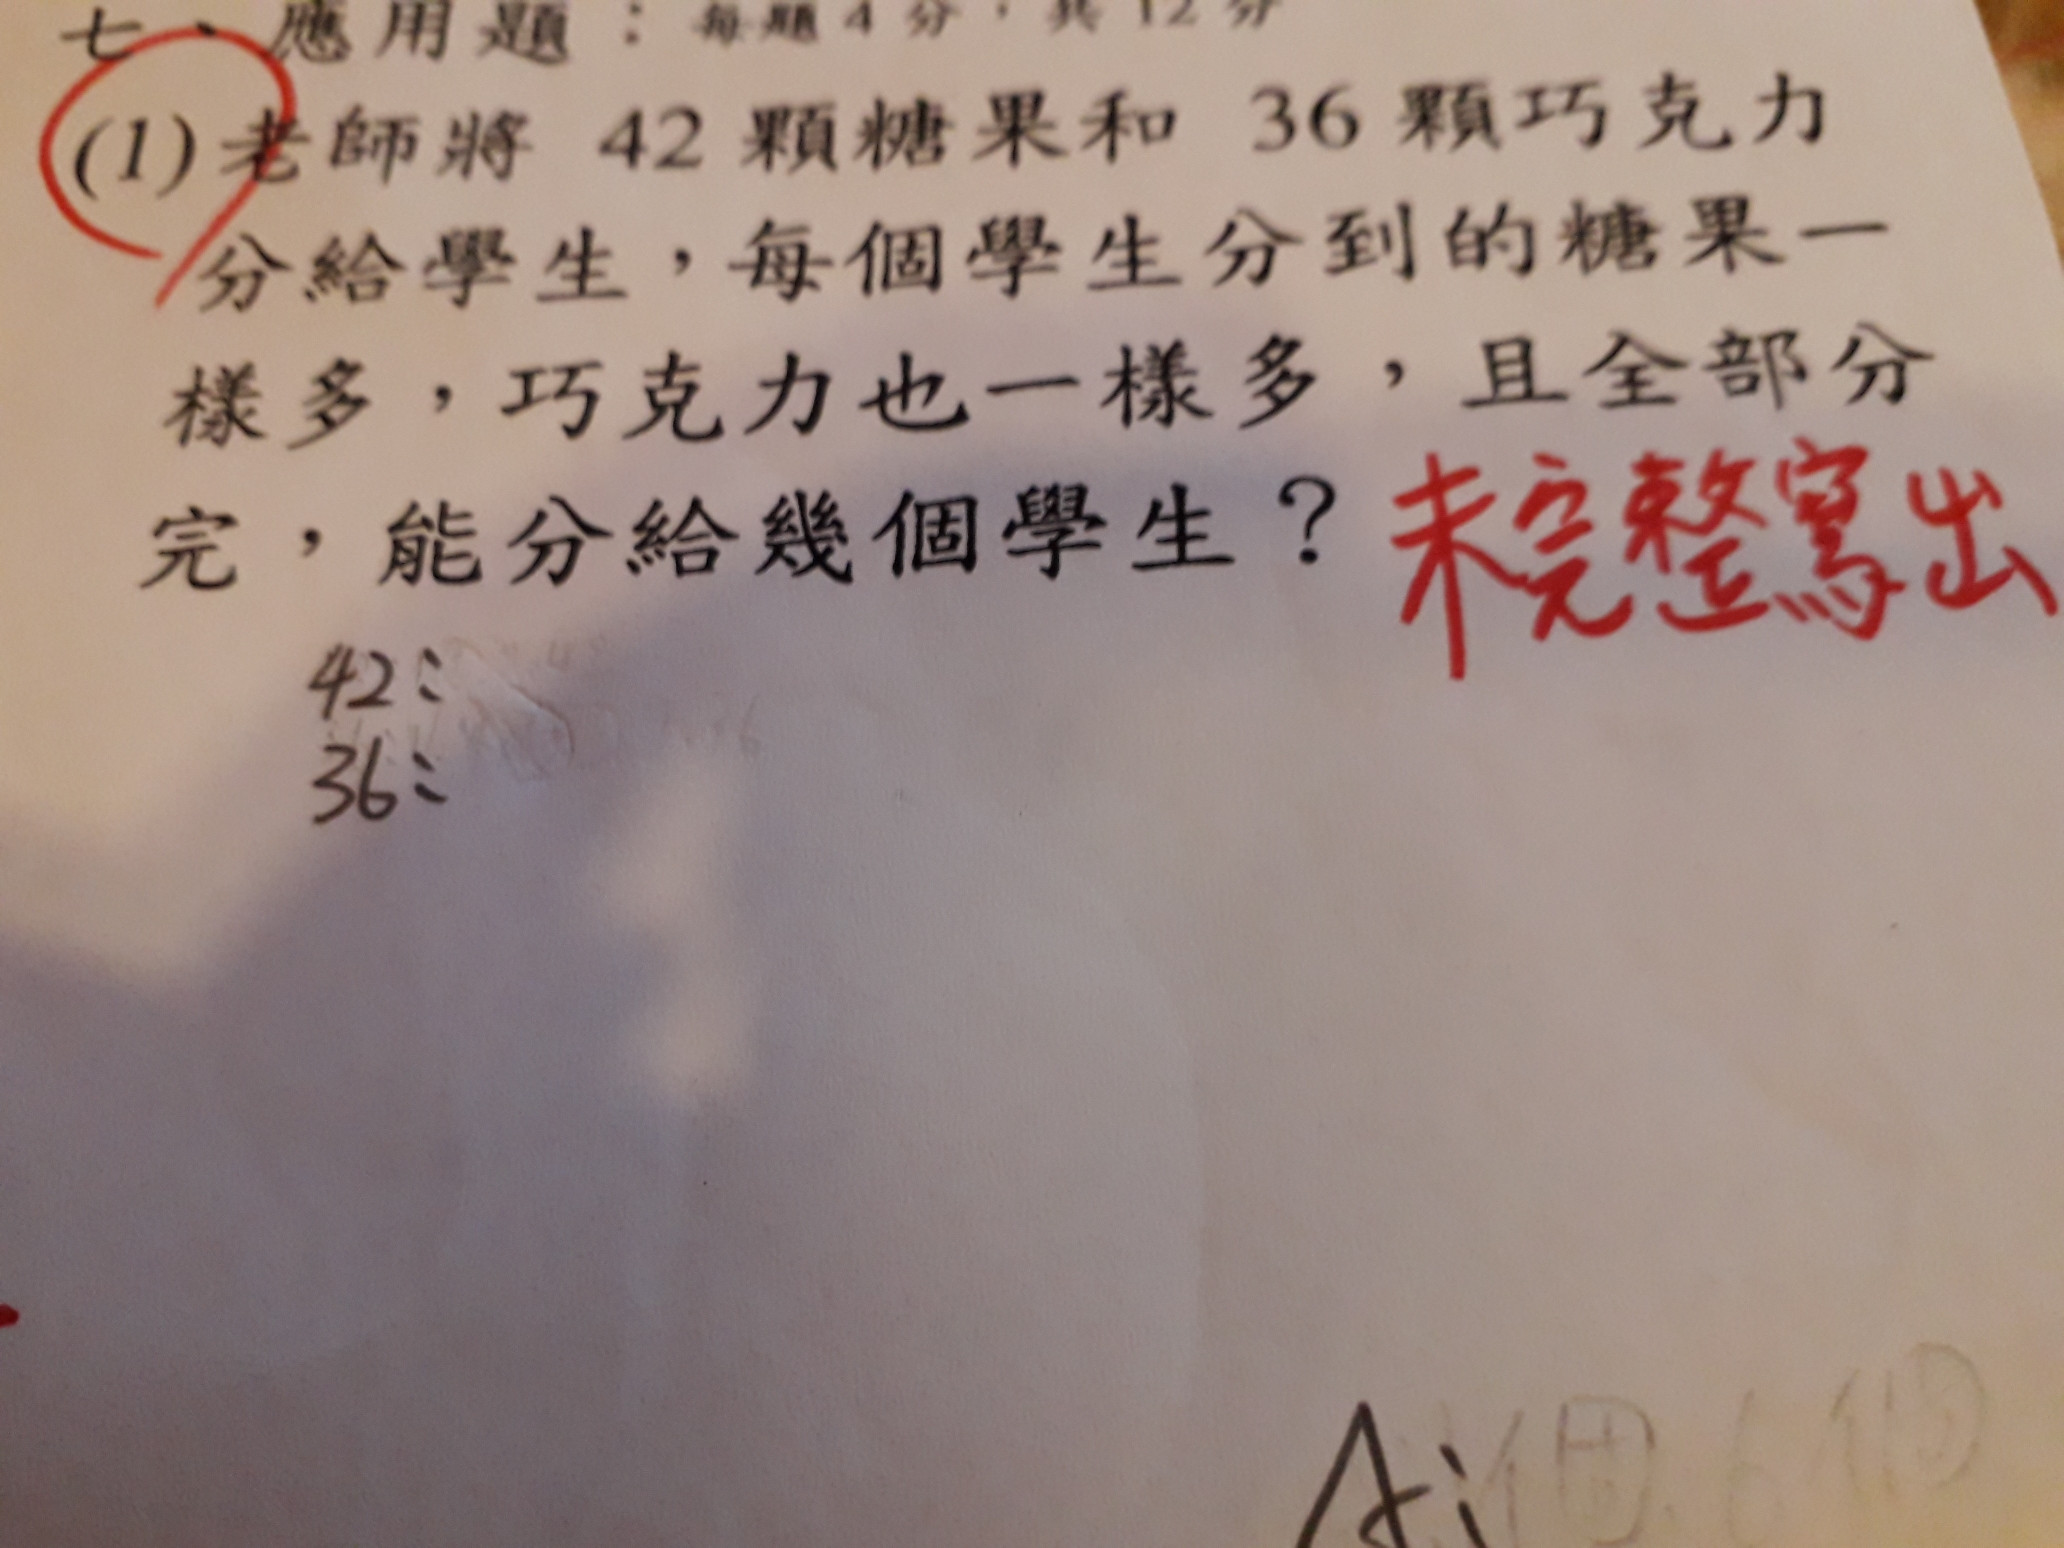 七、應用題：每題4分，共12分
(1)老師將 42 顆糖果和 36 顆巧克力
分給學生，每個學生分到的糖果一
樣多，巧克力也一樣多，且全部分
完，能分給幾個學生？未完整寫出
42：
36：
A：